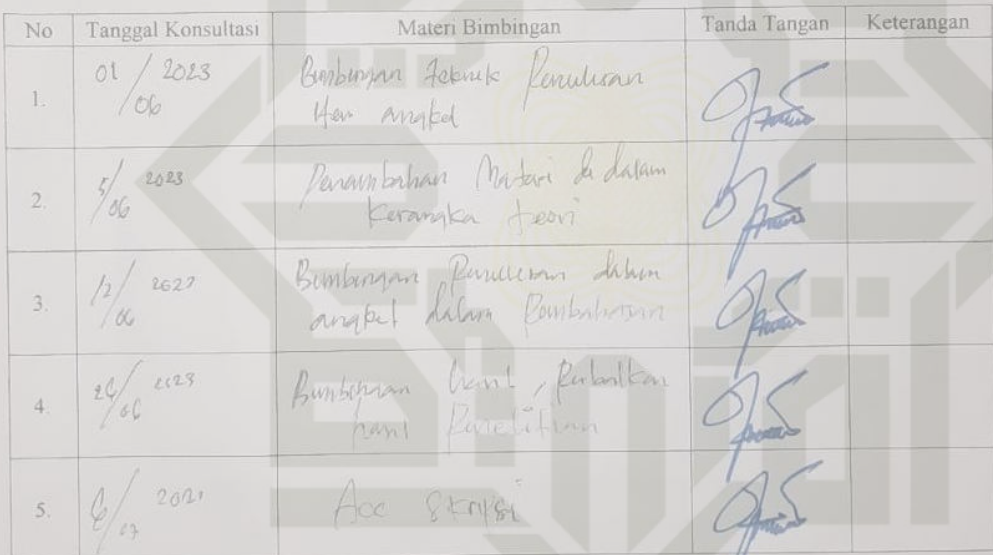 No Tanggal Konsultasi Materi Bimbingan Tanda Tangan Keterangan
1. 01/06 2023 Bimbingan Teknik Penulisan
angket
2. 5/06 2023 Penambahan Materi di dalam
Kerangka teori
3. 12/06 Bimbingan Penulisan dalam
angket dalam Pembahasan
4. 2023 Bimbingan hasil, Perbaikan
hasil Penelitian
5. Acc Skripsi